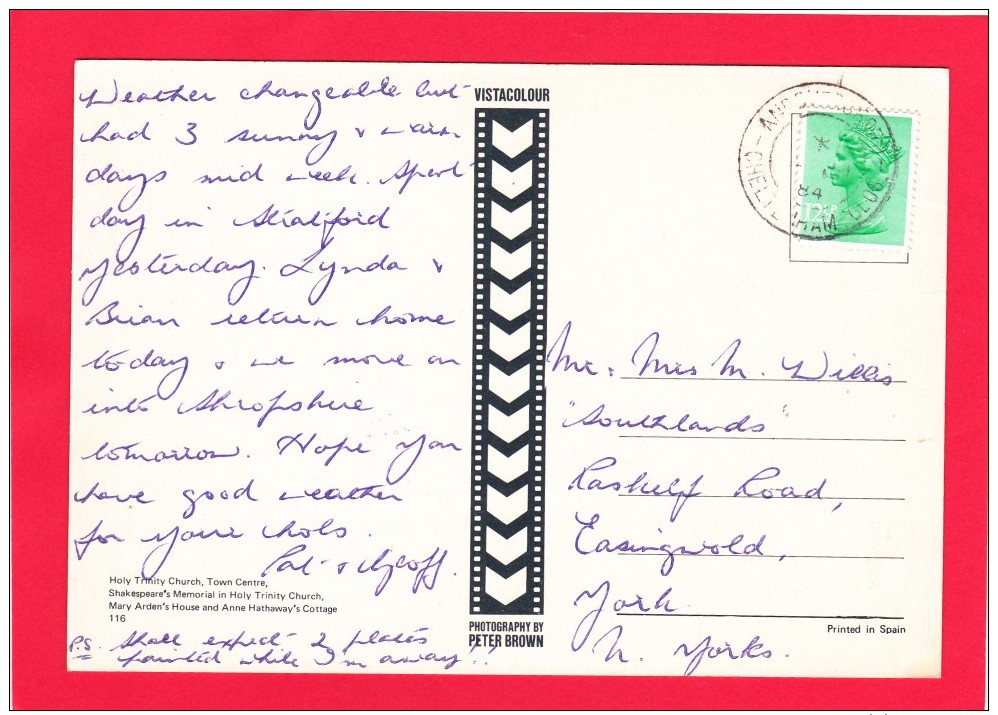 Weather changeable but
had 3 sunny & warm
days mid week. Spent
day in Stratford
yesterday. Lynda &
Brian return home
today & we move on
into Shropshire
tomorrow. Hope you
have good weather
for your hols.
Pat & Geoff.
Holy Trinity Church, Town Centre,
Shakespeare's Memorial in Holy Trinity Church,
Mary Arden's House and Anne Hathaway's Cottage
116
P.S. Shall expect 2 plates
painted while I'm away!!
VISTACOLOUR
PHOTOGRAPHY BY
PETER BROWN
84
CHELTENHAM GLOS
12½P
Mr. Mrs M. Willis
"Southlands"
Raskelf Road,
Easingwold,
York.
N. Yorks.
Printed in Spain